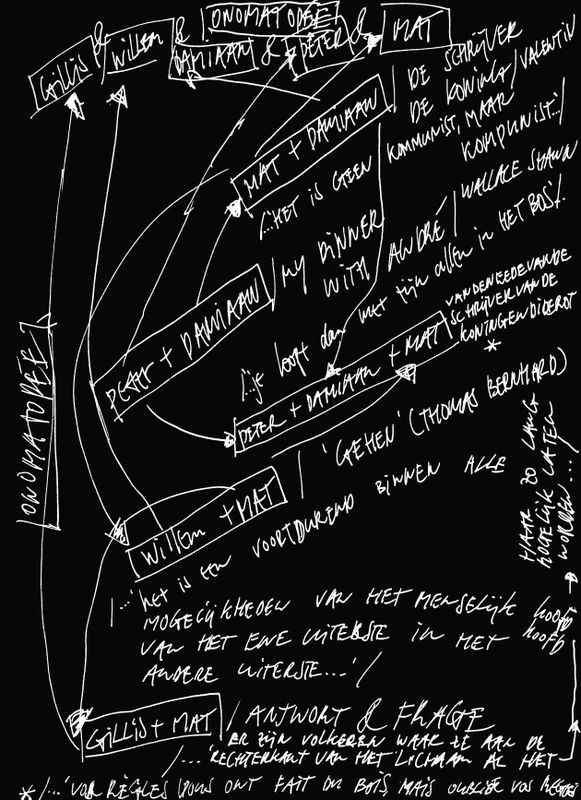 Gillis & Willem & ONOMATOPEE DAMIAAN & PETER & MAT
MAT + DAMIAAN / DE SCHRIJVER
DE KONING / VALENTIN
/...HET IS GEEN KOMMUNIST, MAAR
KOMPUNIST.../
PETER + DAMIAAN / MY DINNER
WITH ANDRÉ / WALLACE SHAWN
/...je loopt dan met zijn allen in HET BOS/.
PETER + DAMIAAN + MAT
VANDENEEDEVANDE
SCHRIJVERVANDE
KONINGENDIDEROT
*
ONOMATOPEE
Willem + MAT / 'GEHEN' (THOMAS BERNHARD)
/...'HET IS EEN VOORTDUREND BINNEN ALLE
MOGELIJKHEDEN VAN HET MENSELIJK hoofd
VAN HET ENE UITERSTE IN HET hoofd
ANDERE UITERSTE...'/
Gillis + MAT / ANTWORT & FRAGE
ER ZIJN VOLKEREN WAAR ZE AAN DE
/...'RECHTERKANT VAN HET LICHAAM AL HET
HAAR ZO LANG
MOGELIJK LATEN
WORDEN...'/
* /...'VOS REGLES VOUS ONT FAIT DE BOIS, MAIS